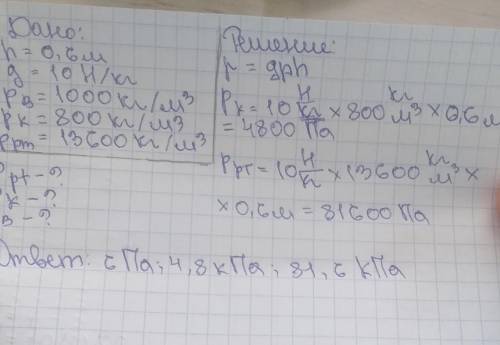 Дано:
h = 0,6м
g = 10 Н/кг
Рв = 1000 кг/м³
Рк = 800 кг/м³
Ррт = 13600 кг/м³
Ррт - ?
Рк - ?
Рв - ?
Решение:
р = gρh
Рк = 10 Н/кг × 800 кг/м³ × 0,6м
= 4800 Па
Ррт = 10 Н/к × 13600 кг/м³ ×
× 0,6м = 81600 Па
Ответ: 6 Па; 4,8 кПа; 81,6 кПа